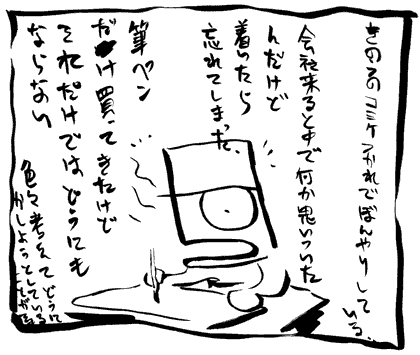 きのうのコミケつかれでぼんやりして
いる。
会社来ると中で何か思いついた
んだけど
着いたら
忘れてしまった。
筆ペン
だけ買ってきたけど
それだけではどうにも
ならない
色々考えてどうに
かしようとしている